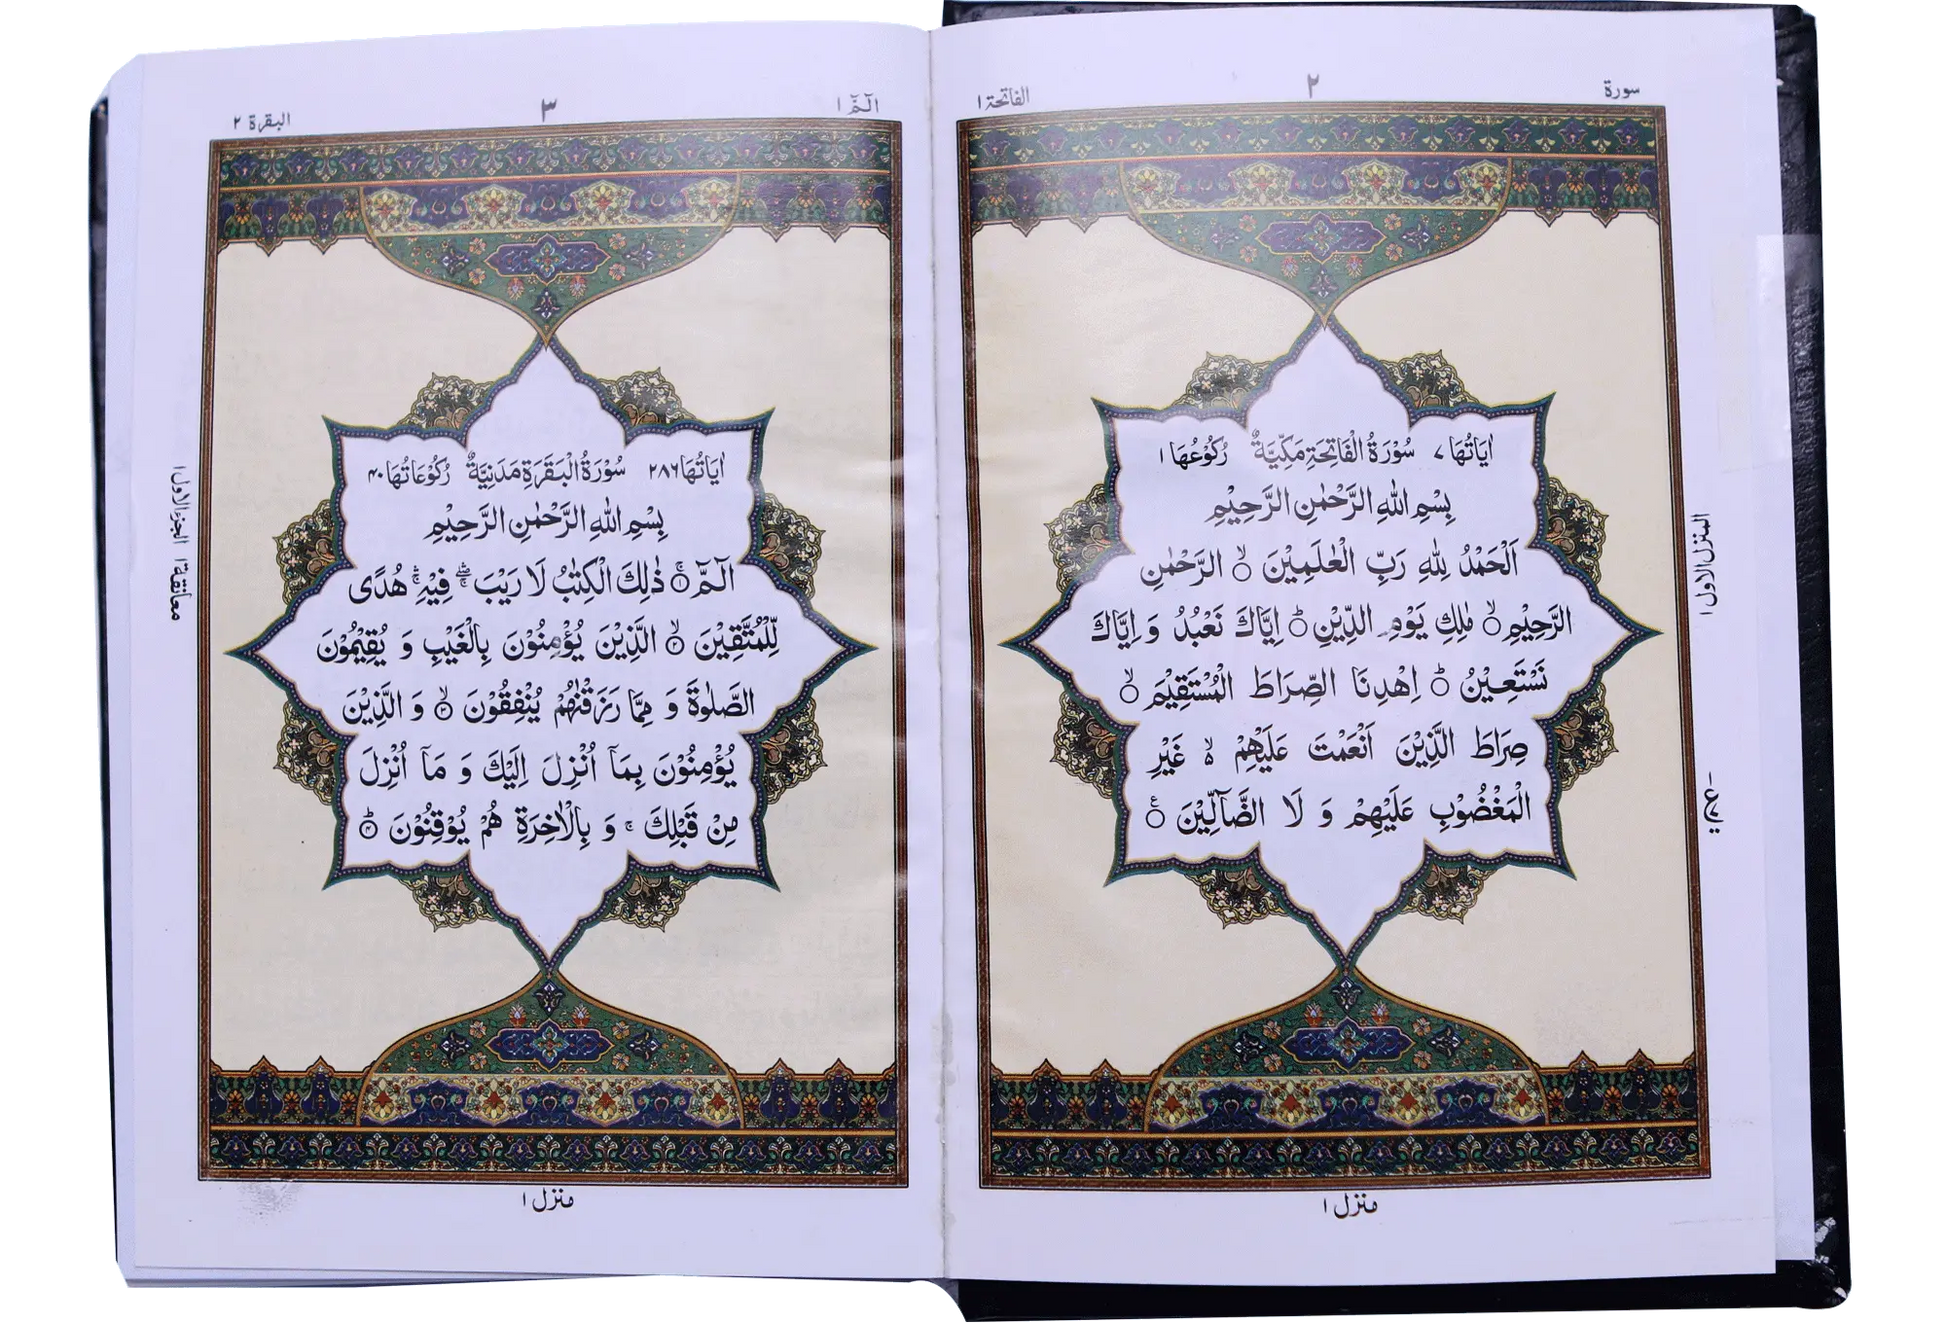 سورة
٢
الفاتحة ١
اٰيَاتُهَا ٧ سُوْرَةُ الْفَاتِحَةِ مَكِّيَّةٌ رُكُوْعُهَا ١
بِسْمِ اللهِ الرَّحْمٰنِ الرَّحِيْمِ
اَلْحَمْدُ لِلّٰهِ رَبِّ الْعٰلَمِيْنَ ۙ الرَّحْمٰنِ
الرَّحِيْمِ ۙ مٰلِكِ يَوْمِ الدِّيْنِ ؕ اِيَّاكَ نَعْبُدُ وَ اِيَّاكَ
نَسْتَعِيْنُ ؕ اِهْدِنَا الصِّرَاطَ الْمُسْتَقِيْمَ ۙ
صِرَاطَ الَّذِيْنَ اَنْعَمْتَ عَلَيْهِمْ ۙ غَيْرِ
الْمَغْضُوْبِ عَلَيْهِمْ وَ لَا الضَّآلِّيْنَ
المنزل الاول ١
منزل ١
الٓمّٓ ١
٣
البقرة ٢
اٰيَاتُهَا ٢٨٦ سُوْرَةُ الْبَقَرَةِ مَدَنِيَّةٌ رُكُوْعَاتُهَا ٤٠
بِسْمِ اللهِ الرَّحْمٰنِ الرَّحِيْمِ
الٓمّٓ ۚ ذٰلِكَ الْكِتٰبُ لَا رَيْبَ ۛ فِيْهِ ۛ هُدًى
لِّلْمُتَّقِيْنَ ۙ٢ الَّذِيْنَ يُؤْمِنُوْنَ بِالْغَيْبِ وَ يُقِيْمُوْنَ
الصَّلٰوةَ وَ مِمَّا رَزَقْنٰهُمْ يُنْفِقُوْنَ ۙ٣ وَ الَّذِيْنَ
يُؤْمِنُوْنَ بِمَآ اُنْزِلَ اِلَيْكَ وَ مَآ اُنْزِلَ
مِنْ قَبْلِكَ ۚ وَ بِالْاٰخِرَةِ هُمْ يُوْقِنُوْنَ ؕ٤
معانقة ١ الجزء الاول ١
منزل ١